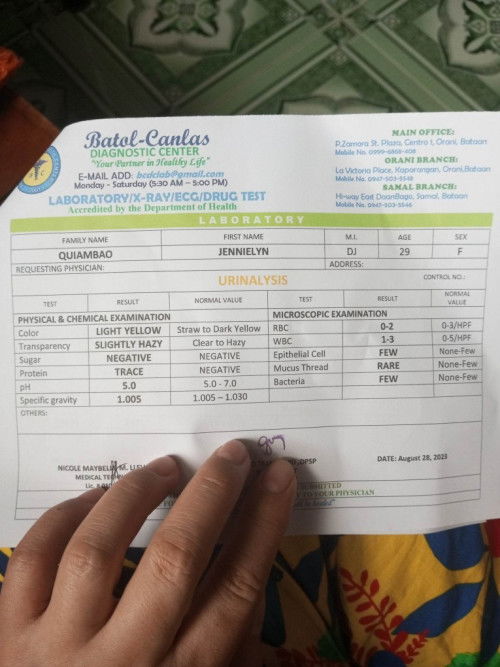 Batol-Canlas
DIAGNOSTIC CENTER
"Your Partner in Healthy Life"
E-MAIL ADD: bcdclab@gmail.com
Monday - Saturday (5:30 AM – 5:00 PM)
LABORATORY/X-RAY/ECG/DRUG TEST
Accredited by the Department of Health
MAIN OFFICE:
P.Zamora St. Plaza, Centro I, Orani, Bataan
Mobile No. 0999-6868-408
ORANI BRANCH:
La Victoria Place, Kaparangan, Orani, Bataan
Mobile No. 0947-503-5546
SAMAL BRANCH:
Hi-way East DaanBago, Samal, Bataan
Mobile No. 0947-503-5546
LABORATORY
FAMILY NAME FIRST NAME M.I. AGE SEX
QUIAMBAO JENNIELYN DJ 29 F
REQUESTING PHYSICIAN: ADDRESS:
URINALYSIS CONTROL NO.:
TEST RESULT NORMAL VALUE TEST RESULT NORMAL VALUE
PHYSICAL & CHEMICAL EXAMINATION MICROSCOPIC EXAMINATION
Color LIGHT YELLOW Straw to Dark Yellow RBC 0-2 0-3/HPF
Transparency SLIGHTLY HAZY Clear to Hazy WBC 1-3 0-5/HPF
Sugar NEGATIVE NEGATIVE Epithelial Cell FEW None-Few
Protein TRACE NEGATIVE Mucus Thread RARE None-Few
pH 5.0 5.0 - 7.0 Bacteria FEW None-Few
Specific gravity 1.005 1.005 – 1.030
OTHERS:
NICOLE MAYBELL M. DPSP DATE: August 28, 2023
MEDICAL
Lic.
TO YOUR PHYSICIAN